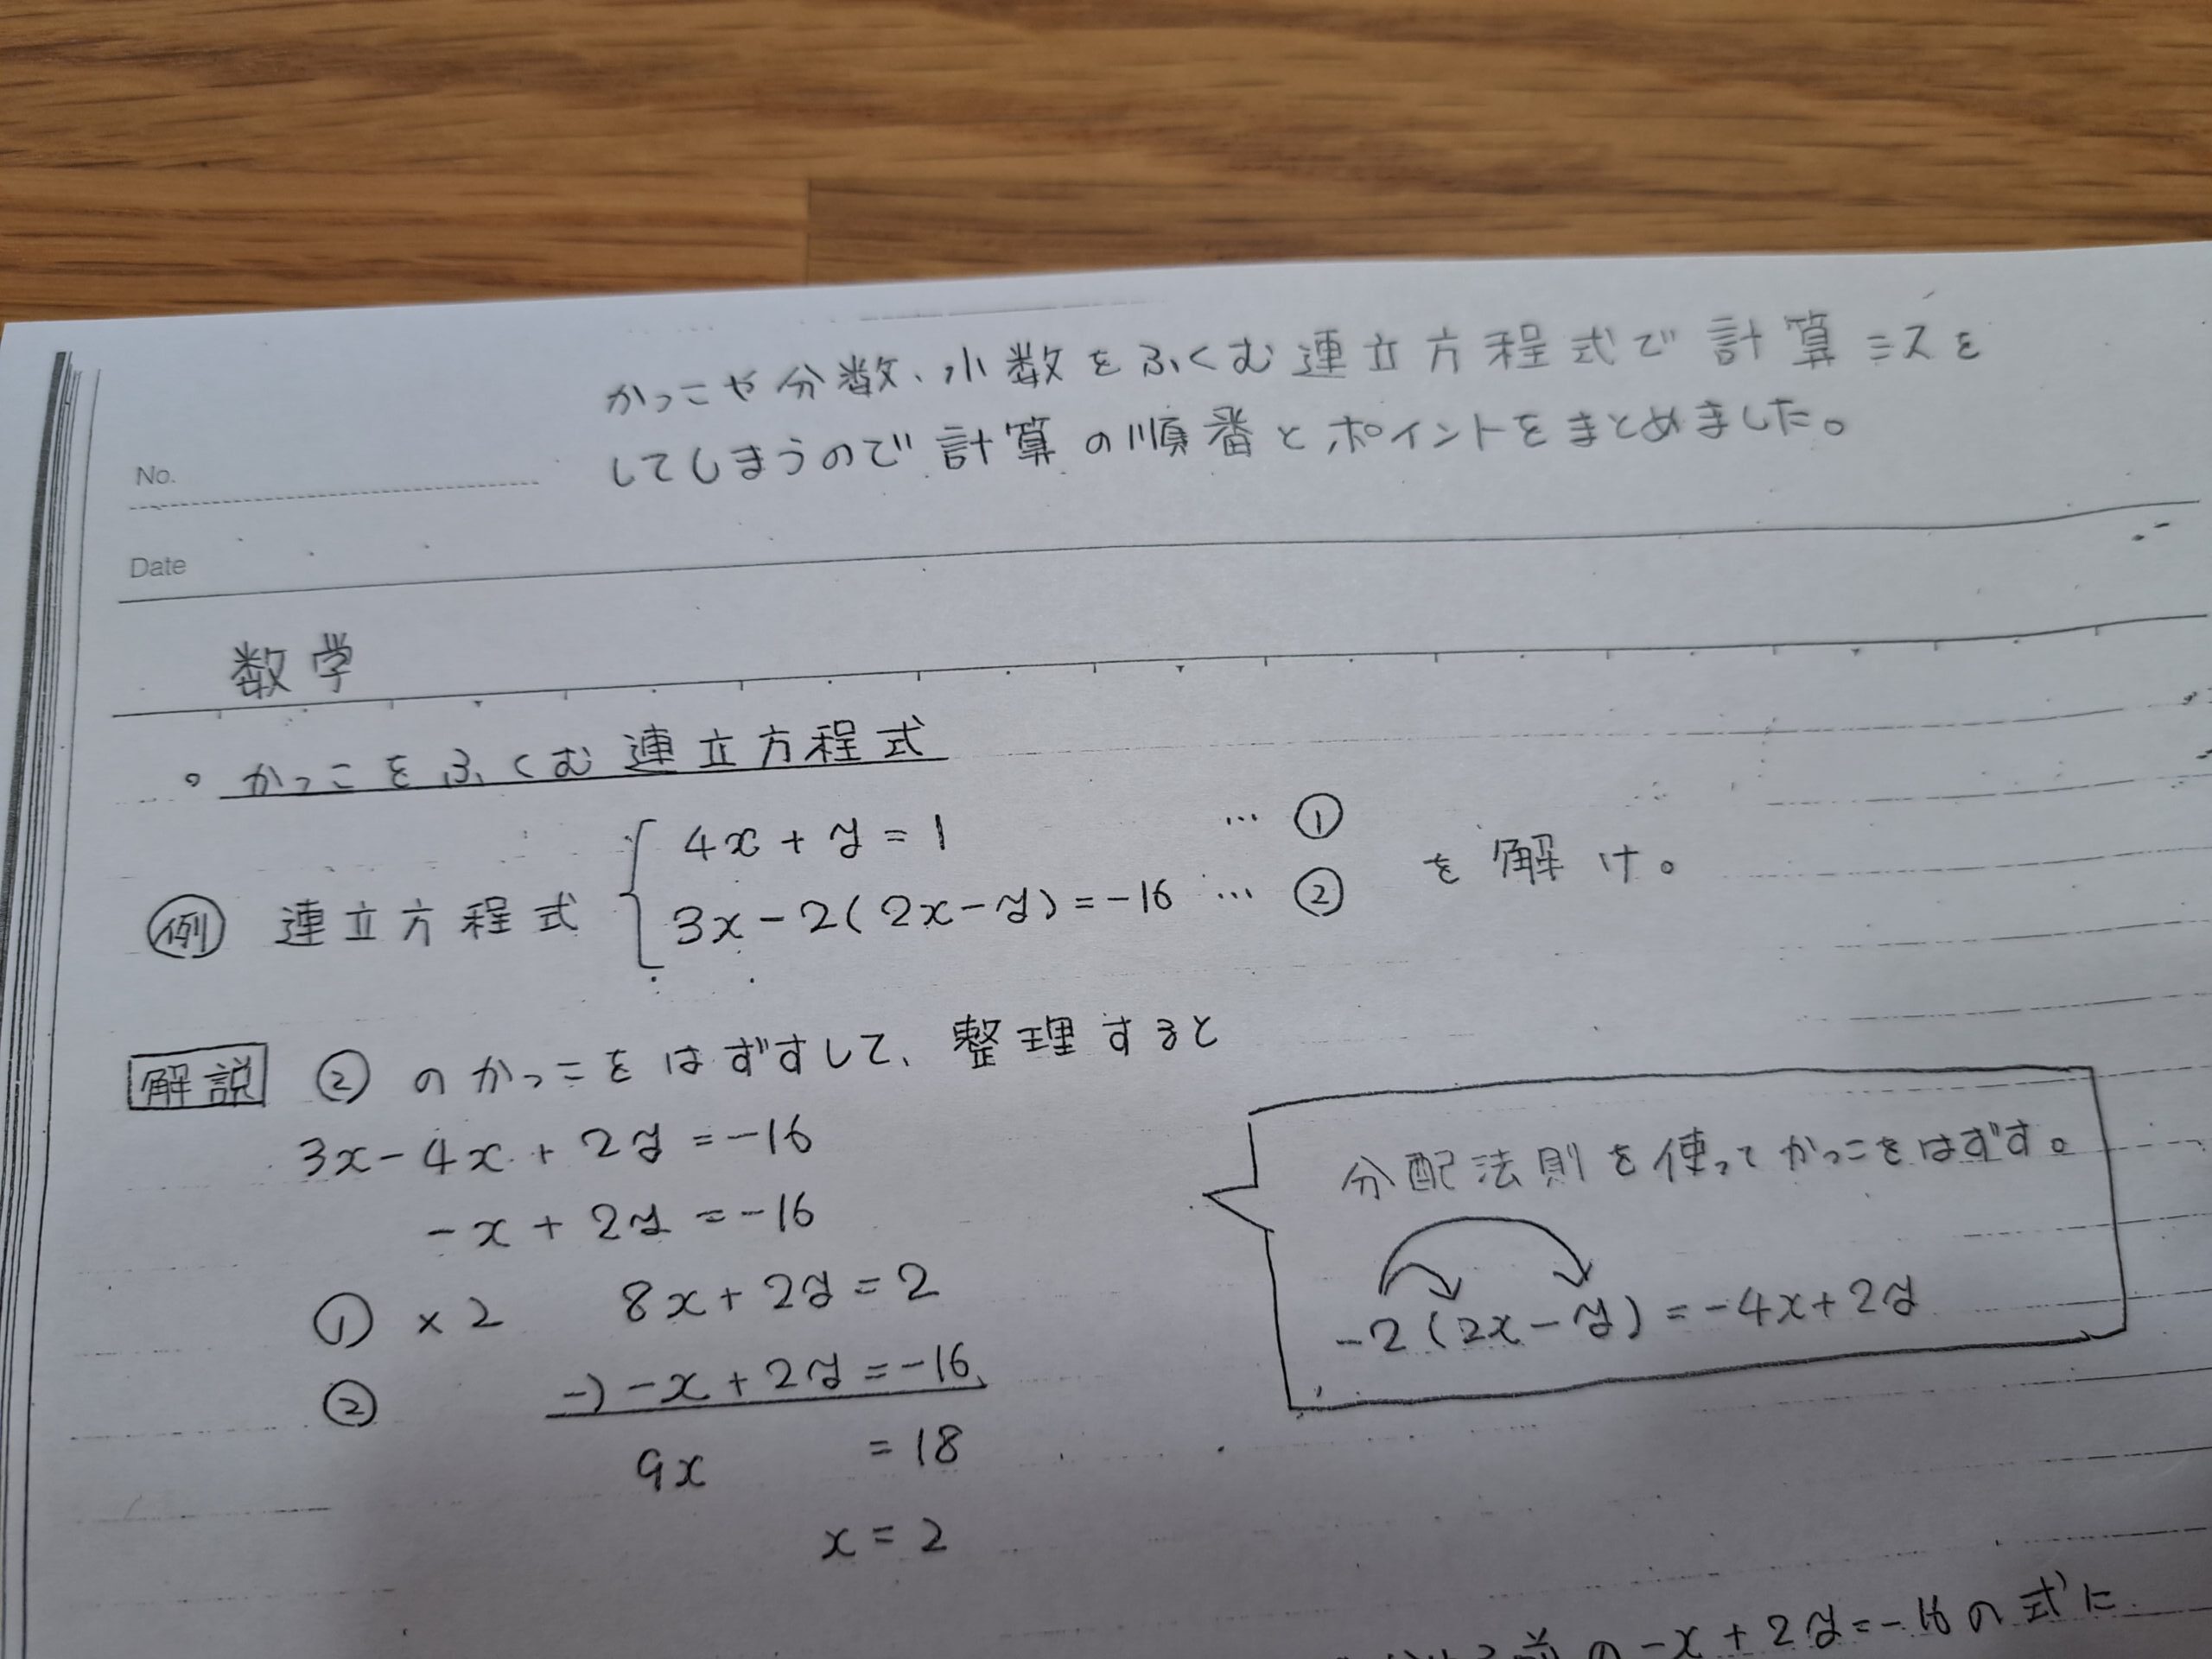 かっこや分数、小数をふくむ連立方程式で計算ミスを
してしまうので計算の順番とポイントをまとめました。
No.
Date
数学
。かっこをふくむ連立方程式
例 連立方程式 { 4x + y = 1 … ①
3x - 2(2x - y) = -16 … ② を解け。
解説 ② のかっこをはずすして、整理すると
3x - 4x + 2y = -16
-x + 2y = -16
分配法則を使ってかっこをはずす。
-2(2x - y) = -4x + 2y
① × 2 8x + 2y = 2
② -) -x + 2y = -16
9x = 18
x = 2
の -x + 2y = -16 の式に